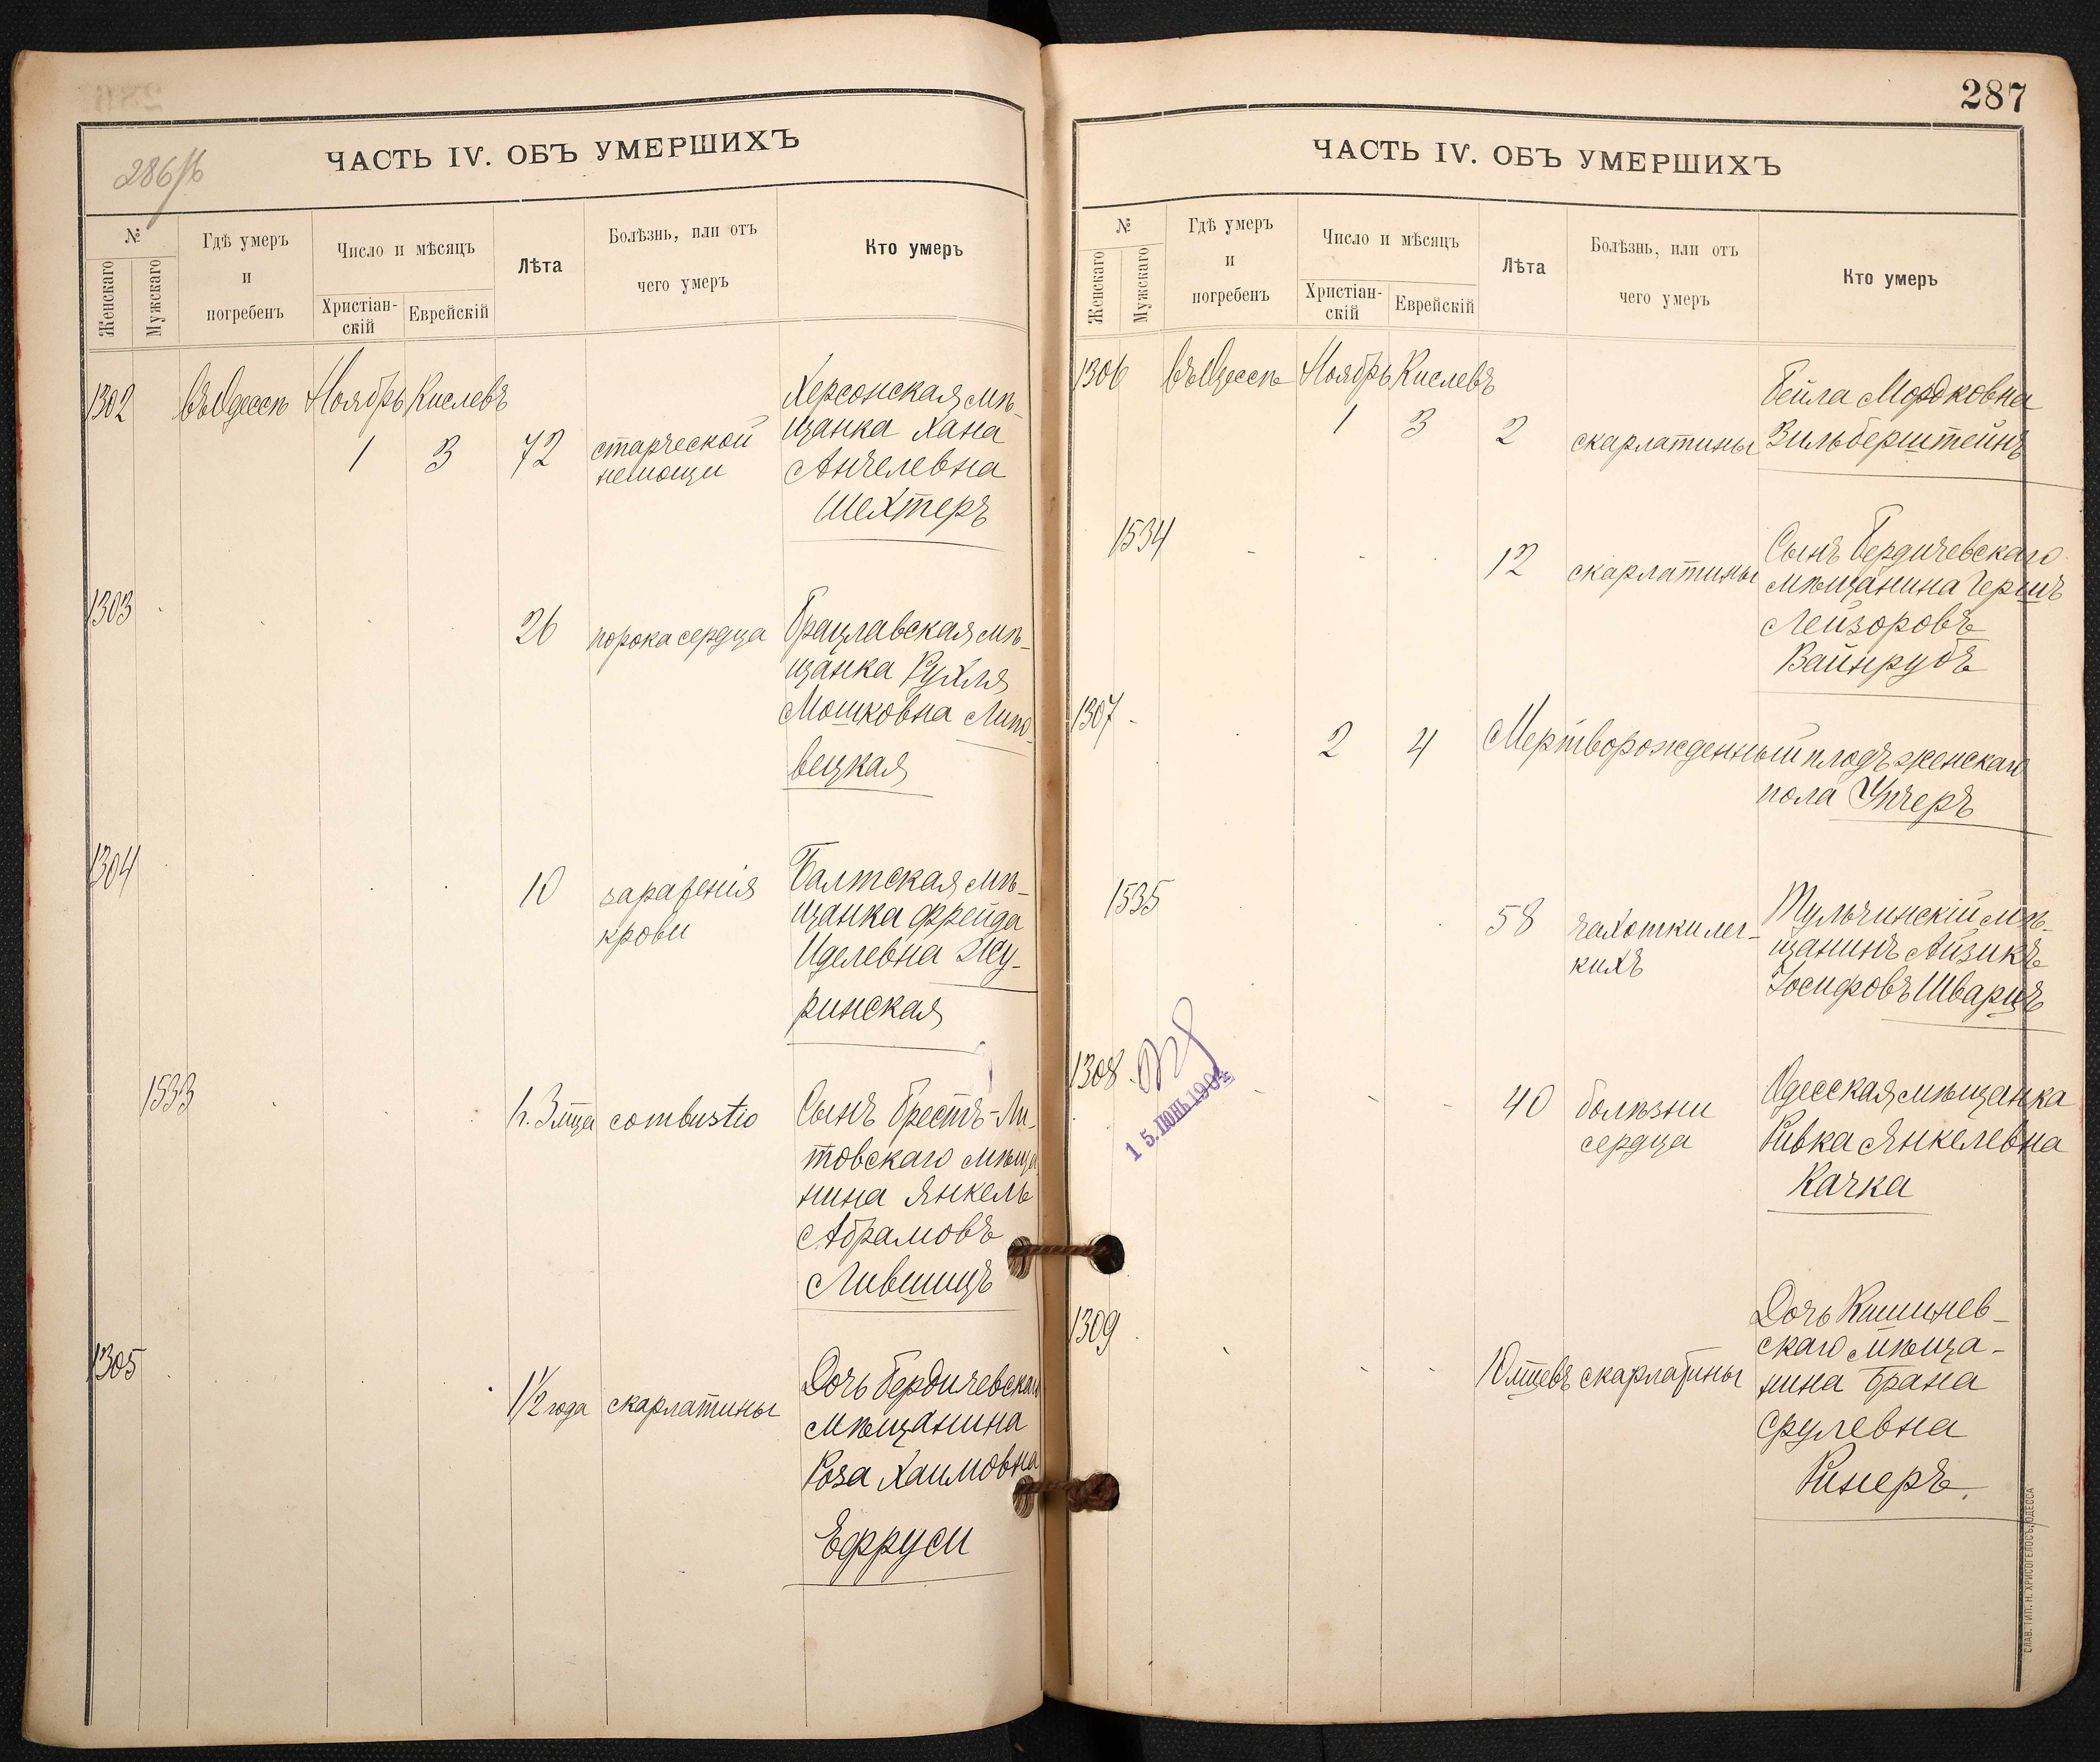 286/б
ЧАСТЬ IV. ОБЪ УМЕРШИХЪ
№
Женскаго
Мужскаго
Гдѣ умеръ
и
погребенъ
Число и мѣсяцъ
Христіан-
скій
Еврейскій
Лѣта
Болѣзнь, или отъ
чего умеръ
Кто умеръ
1302
въ Одессѣ
Ноябрь
Кислевъ
1
3
72
старческой
немощи
Херсонская мѣ-
щанка Хана
Анчелевна
Шехтеръ
1303
26
порока сердца
Брацлавская мѣ-
щанка Рухля
Мошковна Липо-
вецкая
1304
10
зараженія
крови
Балтская мѣ-
щанка Фрейда
Иделевна Жу-
ринская
1533
combustio
Сынъ Брестъ-Ли-
товскаго мѣща
нина Янкель
Абрамовъ
Лившицъ
1305
1 1/2 года
скарлатины
Дочь Бердичевскаго
мѣщанина
Роза Хаимовна
Ефруси
287
ЧАСТЬ IV. ОБЪ УМЕРШИХЪ
№
Женскаго
Мужскаго
Гдѣ умеръ
и
погребенъ
Число и мѣсяцъ
Христіан-
скій
Еврейскій
Лѣта
Болѣзнь, или отъ
чего умеръ
Кто умеръ
1306
въ Одессѣ
Ноябрь
Кислевъ
1
3
2
скарлатины
Бейла Мордковна
Зильберштейнъ
1534
12
скарлатины
Сынъ Бердичевскаго
мѣщанина Гершъ
Лейзоровъ
Вайнрубъ
1307
2
4
Мертворожденный плодъ женскаго
пола
1535
58
чахотки лег-
кихъ
Тульчинскій мѣ-
щанинъ Айзикъ
Іосифовъ Шварцъ
1308
15. ІЮНЬ 1904
40
болѣзни
сердца
Одесская мѣщанка
Ривка Янкелевна
Качка
1309
10 мцевъ
скарлатины
Дочь Кишинев-
скаго мѣща-
нина Брана
Срулевна
Ринеръ.
СЛАВ. ТИП. Н. ХРИСОГЕЛОСЪ, ОДЕССА